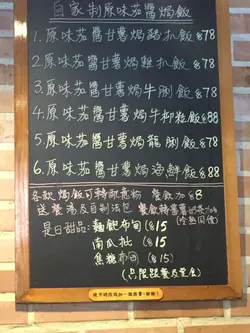 自家制原味茄醬焗飯
1.原味茄醬甘薯焗豬扒飯$78
2.原味茄醬甘薯焗雞扒飯$78
3.原味茄醬甘薯焗牛脷飯$78
4.原味茄醬甘薯焗牛柳粒飯$88
5.原味茄醬甘薯焗龍脷飯$78
6.原味茄醬甘薯焗海鮮飯$88
各款焗飯可轉配意粉 餐飲加$8
送餐湯及自制法包 餐飲轉
(冷熱同價)
是日甜品:麵飽布甸($15
南瓜批 ($15
焦糖布甸 ($15)
(只限跟餐及堂食)